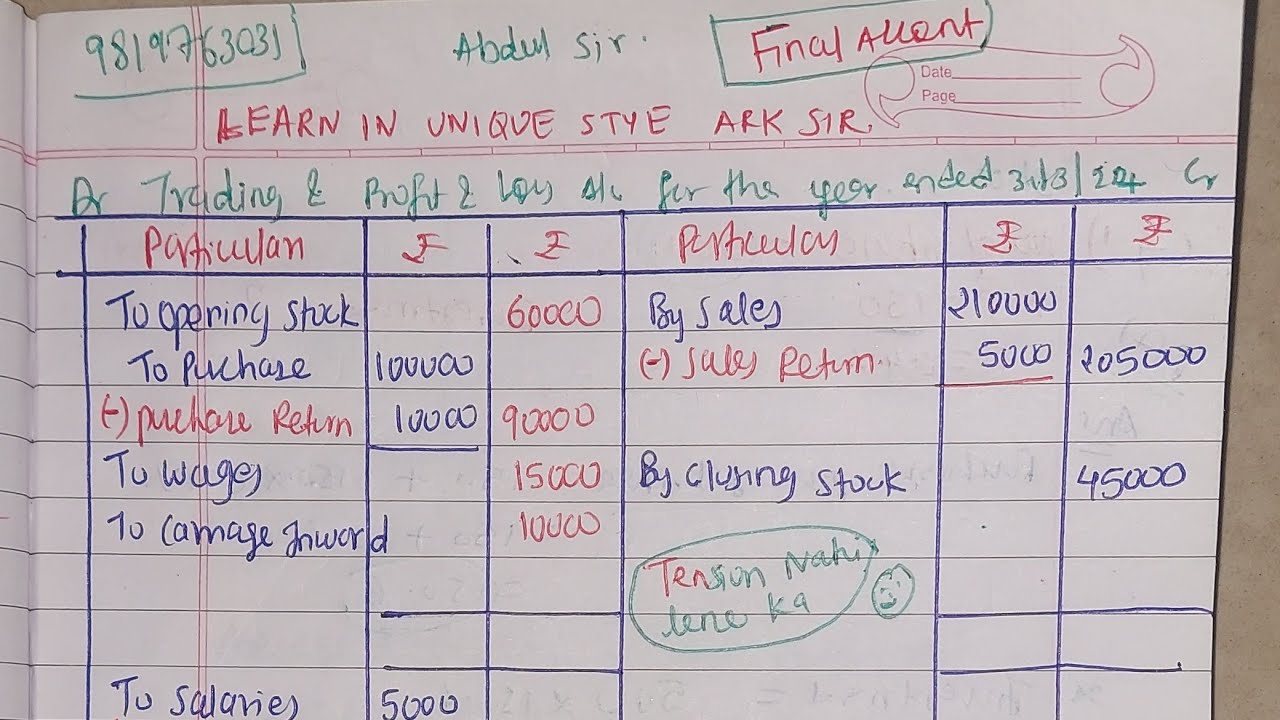 9819763031 Abdul Sir. Final Account
Date
Page
LEARN IN UNIQUE STYE ARK SIR.
Dr Trading & Profit & Loss A/c for the year ended 31/3/24 Cr
Particulars ₹ ₹ Particulars ₹ ₹
To opening stock 60000 By Sales 210000
To Purchase 100000 (-) Sales Return. 5000 205000
(-) purchase Return 10000 90000
To wages 15000 By Closing Stock 45000
To Carriage Inword 10000
Tension Nahi
lene ka
To Salaries 5000